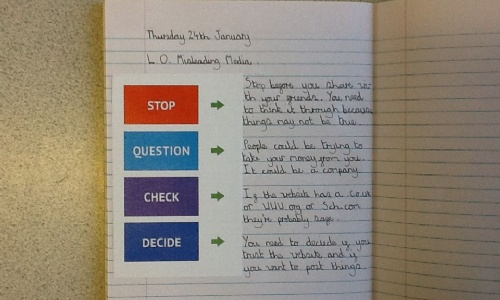 Thursday 24th January
L.O. Misleading Media.
STOP
Stop before you share wi
th your friends. You need
to think it through because
things may not be true.
QUESTION
People could be trying to
take your money from you.
It could be a company.
CHECK
If the website has a .co.uk
or WWW.org or Sch.com
they're probably safe.
DECIDE
You need to decide if you
trust the website and if
you want to post things.